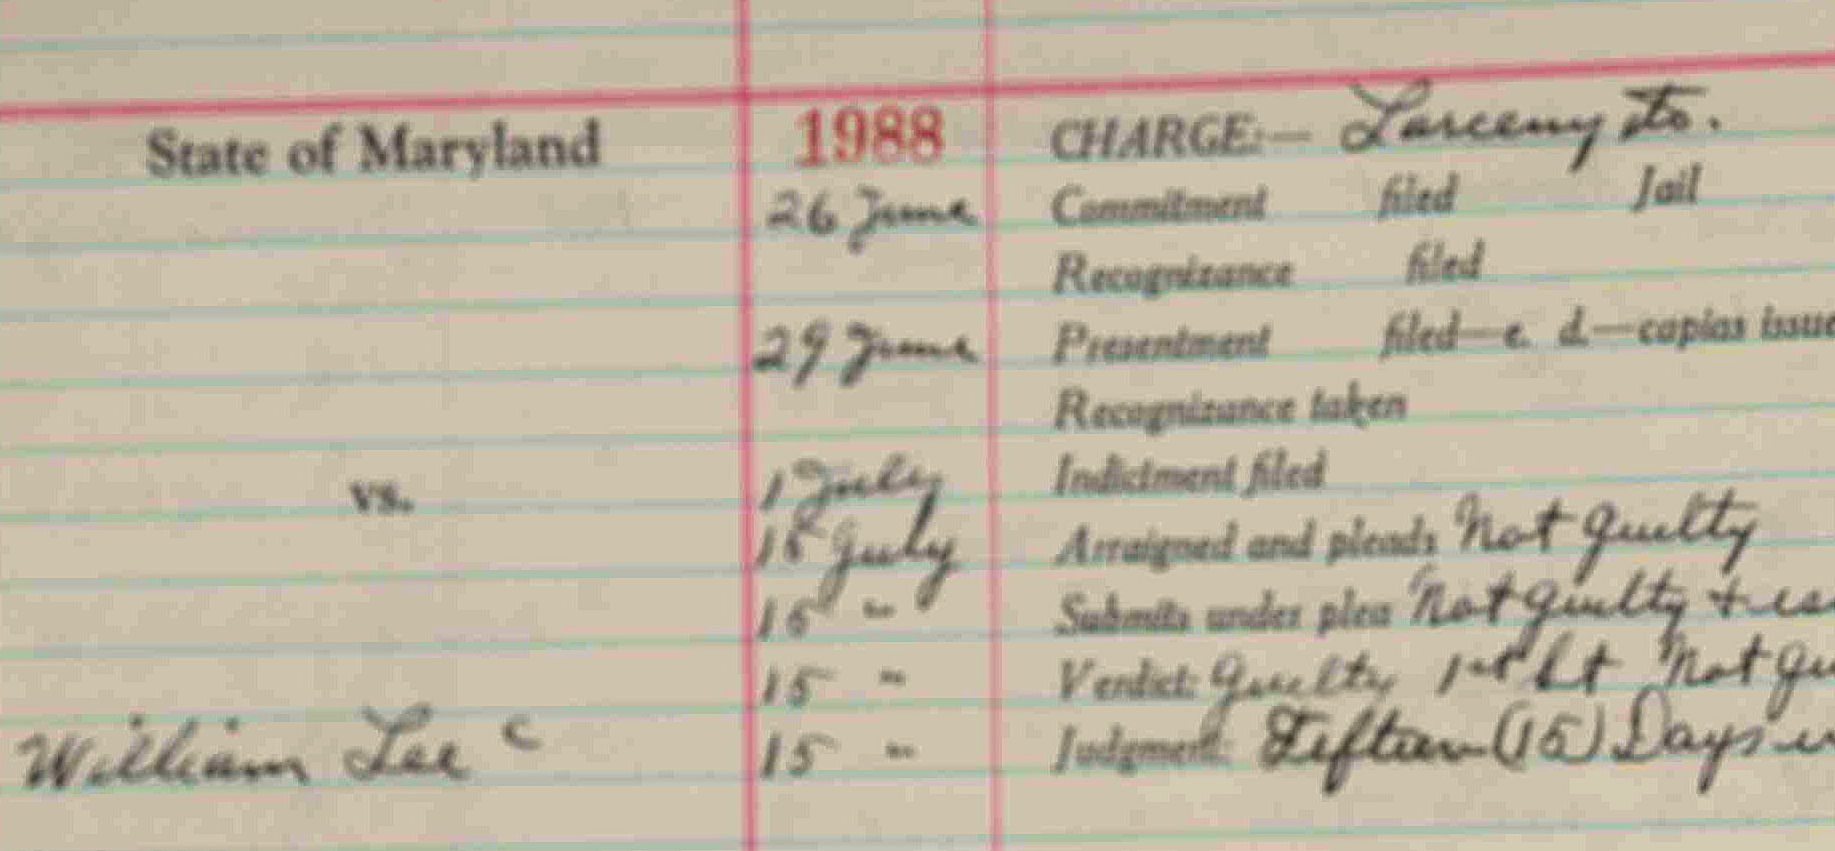 State of Maryland 1988 CHARGE:— Larceny &c.
26 June Commitment filed Jail
Recognizance filed
29 June Presentment filed—e. d.—capias issue
Recognizance taken
vs. 1 July Indictment filed
15 July Arraigned and pleads Not guilty
15 " Submits under plea Not guilty +
15 " Verdict: Guilty 1st Ct Not gu
William Lee c 15 " Judgment: Fifteen (15) Days